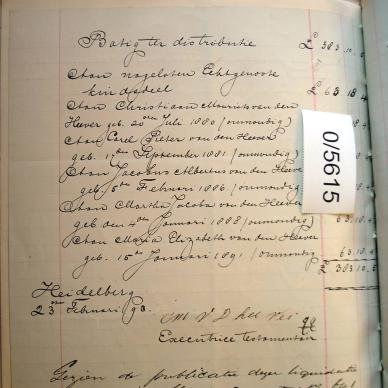 Batig ter distributie £ 383.10.
Aan nagelaten Echtgenoote
kindsdeel £ 63.18.4
Aan Christiaan Maurits van den
Heever geb. 20ste Juli 1880 (onmondig)
Aan Carel Pieter van den Heever
geb. 17den September 1881. (onmondig)
Aan Jacobus Albertus van den Heever
geb. 5den Februari 1886. (onmondig)
Aan Martha Jacoba van den Heever
geb den 4den Januari 1888 (onmondig) 63.18.4
Aan Maria Elizabeth van den Heever
geb. 15den Januari 1891 (onmondig) 63.18.4
£ 383.10.
Heidelberg
23ste Februari 93.
Executrice testamentair
Gezien de publicatie dezer liquidatie
0/5615